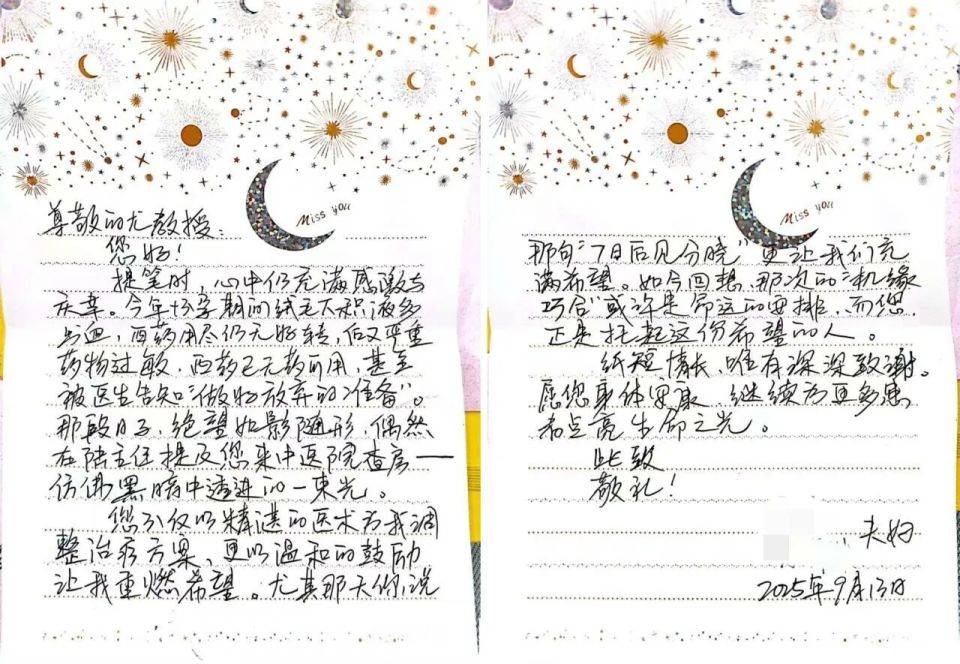 Miss you
尊敬的尤教授：
您好！
提笔时，心中仍充满感激与
庆幸。今年怀孕期间绒毛大积液多
出血，西药用尽仍无好转，后又严重
药物过敏，西药已无药可用，甚至
被医生告知“做好放弃的准备”。
那段日子，绝望如影随形，偶然
在陆主任提及您来中医院查房——
仿佛黑暗中透进的一束光。
您不仅以精湛的医术为我调
整治疗方案，更以温和的鼓励
让我重燃希望。尤其那天你说
Miss you
那句“7日后见分晓”更让我们充
满希望。如今回想，那次的“机缘
巧合”或许是命运的安排，而您，
正是托起这份希望的人。
纸短情长，唯有深深致谢。
愿您身体安康，继续为更多患
者点亮生命之光。
此致
敬礼！
夫妇
2025年9月13日